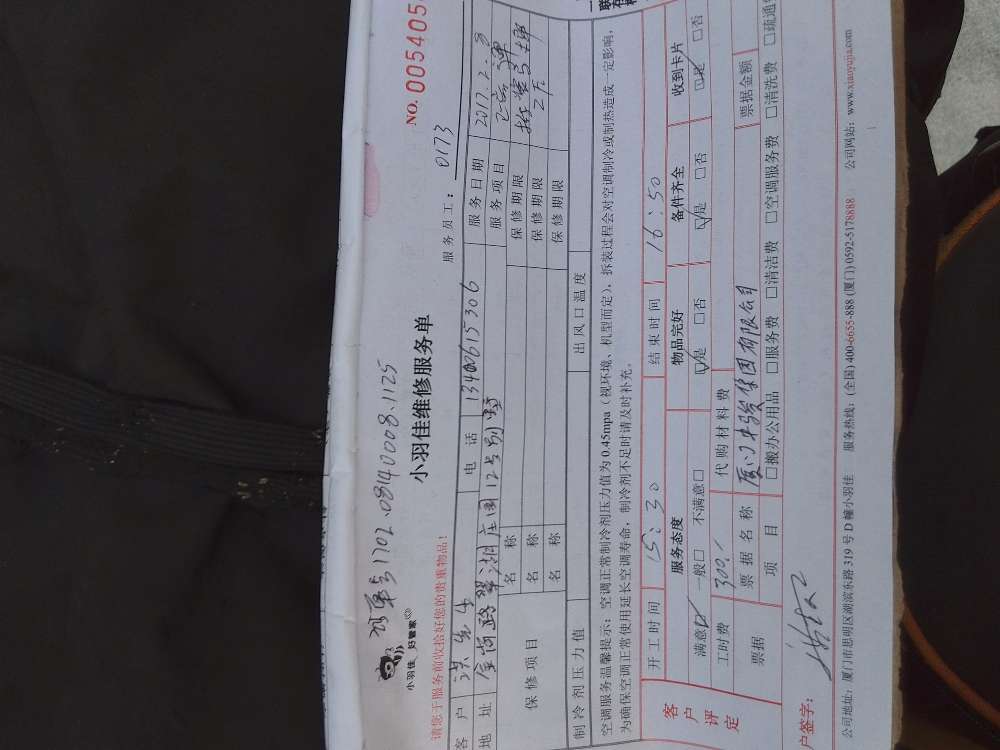 订单号1702.081400008.1125
小羽佳 好管家
小羽佳维修服务单
NO. 005405
请您于服务前收拾好您的贵重物品！
服务员工：0173
客户 洪先生 电话 13400615306 服务日期 2017.2.8
地址 金尚路翠湖庄园12号别墅 服务项目
保修项目 名称 保修期限
名称 保修期限
名称 保修期限
制冷剂压力值 出风口温度
空调服务温馨提示：空调正常制冷剂压力值为 0.45mpa（视环境、机型而定），拆装过程会对空调制冷或制热造成一定影响，
为确保空调正常使用延长空调寿命，制冷剂不足时请及时补充。
客户评定
开工时间 15:30 结束时间 16:50
服务态度 物品完好 备件齐全 收到卡片
满意☑ 一般□ 不满意□ ☑是 □否 ☑是 □否 ☑是 □否
工时费 300.- 代购材料费
票据 票据名称 票据金额
项目 □搬办公用品 □服务费 □清洁费 □空调服务费 □清洗费
户签字：
公司地址：厦门市思明区湖滨东路 319 号 D 幢小羽佳 服务热线：(全国) 400-6655-888 (厦门) 0592-5178888 公司网站：www.xiaoyujia.com